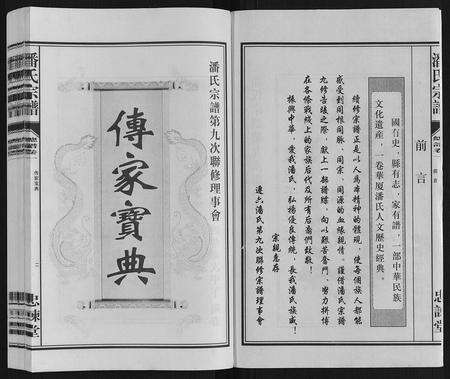 潘氏宗譜
前言
忠諫堂
國有史，縣有志，家有譜，一部中華民族
文化遺產，一卷華廈潘氏人文歷史經典。
續修宗譜正是以人為本精神的體現，使每個族人都能
感受到同根同脈、同宗、同源的血緣親情。謹借潘氏宗譜
九修告竣之際，獻上一部譜牒，向以艱苦奮鬥、努力拼搏
在各條戰綫上的家族后代及所有后裔們致敬！
振興中華，愛我潘氏，弘楊優良傳統，長我潘氏族威！
宗親惠存
六潘氏第九次聯修宗譜理事會
潘氏宗譜第九次聯修理事會
傳家寶典
潘氏宗譜
傳家寶典
二
忠諫堂